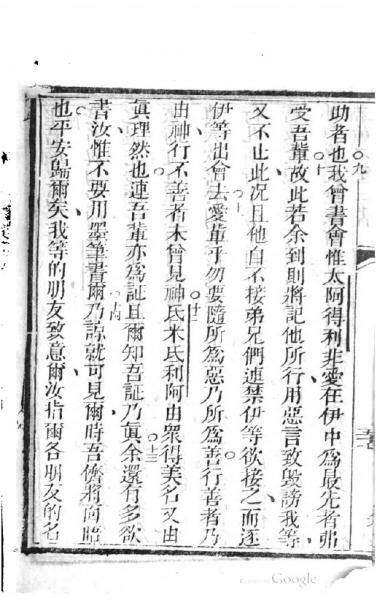 助者也我曾書會惟太阿得利非愛在伊中為最先者弗
受吾輩故此若余到則將記他所行用惡言致毀謗我等
又不止此況且他自不接弟兄們連禁伊等欲接之而逐
伊等出會去愛輩乎勿要隨所為惡乃所為善行善者乃
由神行不善者未曾見神氏米氏利阿由眾得美名又由
真理然也連吾輩亦為証且爾知吾証乃真余還有多欲
書汝惟不要用墨筆書爾乃諒就可見爾時吾儕將向晤
也平安歸爾矣我等的朋友致意爾汝指爾各朋友的名
九
十
十一
十二
十三
十四
Google